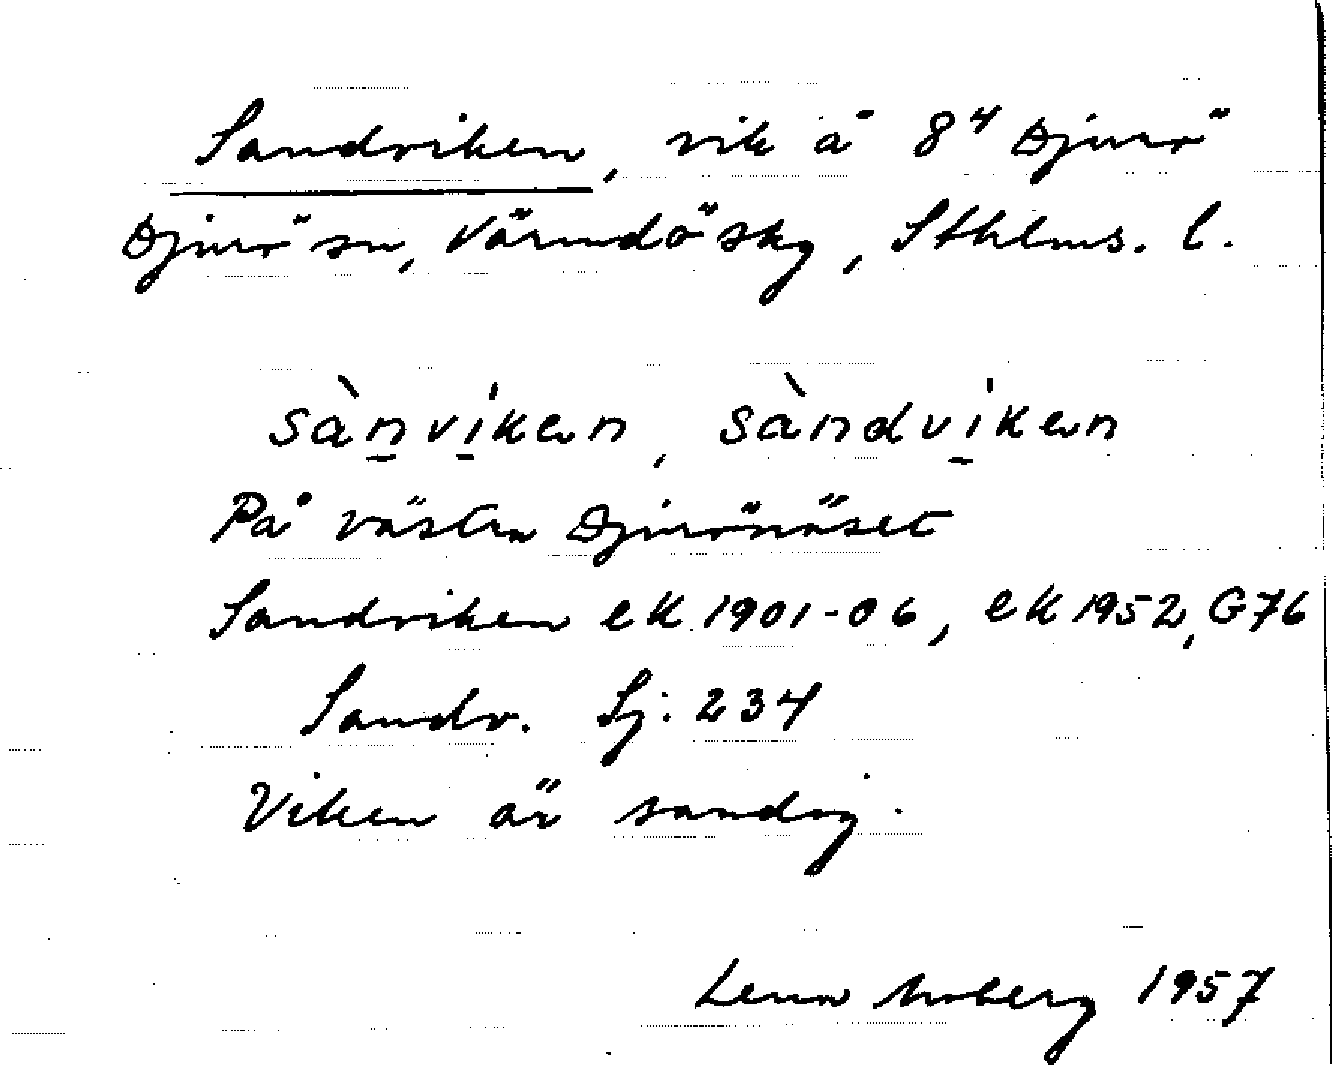 Sandviken, vik å 8⁴ Djurö
Djurö sn, Värmdö skg, Sthlms. l.
sànviken, sàndviken
På västra Djurönäset
Sandviken ek 1901-06, ek 1952, G76
Sandv. Sj: 234
Viken är sandig.
Lena Moberg 1957